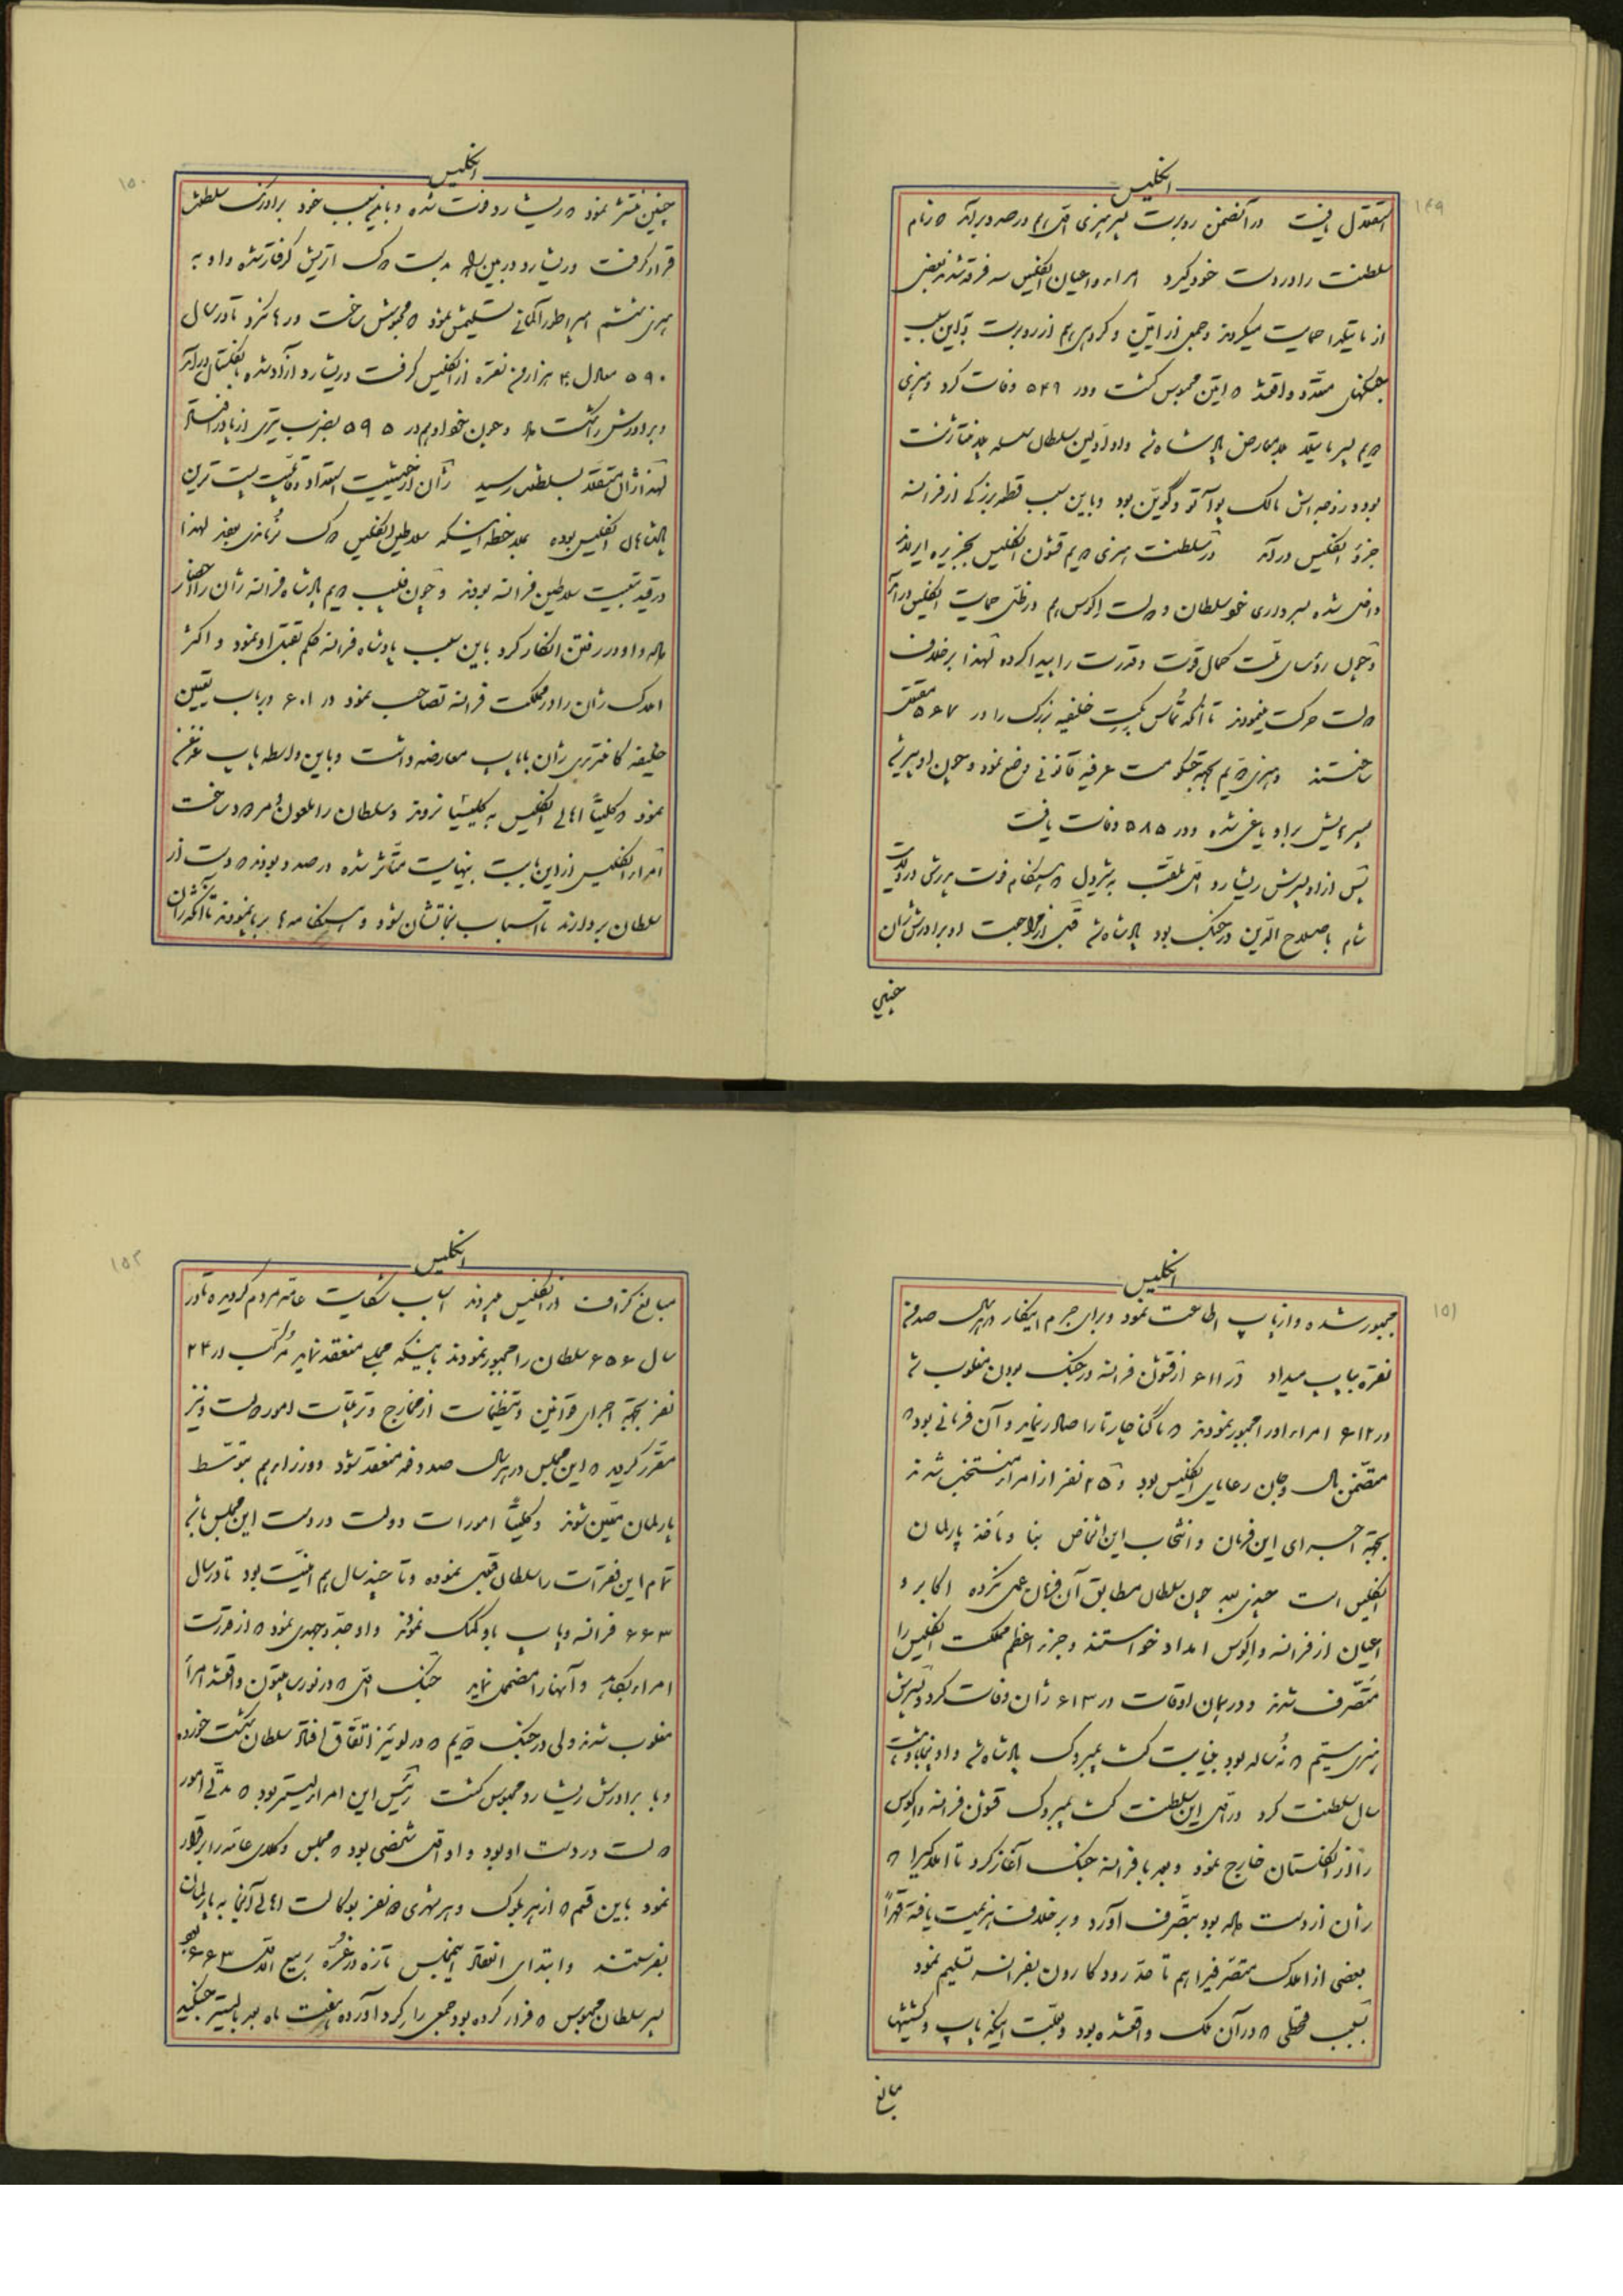 انگلیس
۱۴۹
استقلال یافت در آنضمن روبرت پسر هنری اول هم درصدد برآمد که زمام
سلطنت را در دست خود گیرد امراء و اعیان انگلیس سه فرقه شدند بعضی
از ماتیلدا حمایت میکردند و جمعی از اتین و گروهی هم از روبرت و باین سبب
جنگهای متعدد واقع شد که اتین محبوس گشت و در ۵۴۹ وفات کرد و هنری
دویم پسر ماتیلد بلامعارض پادشاه شد و او اولین سلطان سلسله پلانتاژنت
بوده و زوجه‌اش مالک پواتو و گویّن بود و باین سبب قطعه بزرگی از فرانسه
جزو انگلیس درآمد در سلطنت هنری دویم قشون انگلیس بجزیره ایرلند
داخل شده بسرداری خود سلطان و دولت اکوس هم در ظل حمایت انگلیس درآمد
و چون رؤسای ملت کمال قوت و قدرت را پیدا کرده لهذا برخلاف
دولت حرکت مینمودند تا آنکه تماس بکیت خلیفه بزرگ را در ۵۶۷ مقتول
ساختند و هنری دویم بجهة حکومت عرفیه قانونی وضع نمود و چون او پیر شد
پسرهایش بر او یاغی شده و در ۵۸۵ وفات یافت
پس از او پسرش ریشارد اول ملقب به شیردل که هنگام فوت پدرش در ولایت
شام با صلاح الدین در جنگ بود پادشاه شد قبل از مراجعت او برادرش ژان
چنین
انگلیس
۱۵۰
چنین منتشر نمود که ریشارد فوت شده و باین سبب خود برادرش بسلطنت
قرار گرفت و ریشارد در بین راه بدست دوک اتریش گرفتار شده و او به
هنری ششم امپراطور آلمانی تسلیمش نمود که محبوس ساخت و رها نکرد تا در سال
۵۹۰ معادل ۳۰۰ هزار من نقره از انگلیس گرفت و ریشارد آزاد شده بانگلستان درآمد
و برادرش را شکست داد و چون خود او هم در ۵۹۵ بضرب تیری از پا درافتاد
لهذا ژان مستقلاً بسلطنت رسید ژان از حیثیت استعداد و قابلیت پست‌ترین
پادشاهان انگلیس بوده بملاحظه اینکه سلاطین انگلیس دوک نرماندی بودند لهذا
در قید تبعیت سلاطین فرانسه بودند و چون فلیپ دویم پادشاه فرانسه ژان را احضار
داد و او در رفتن انکار کرد باین سبب پادشاه فرانسه حکم بقتل او نمود و اکثر
املاک ژان را در مملکت فرانسه تصاحب نمود در ۶۰۱ در باب تعیین
خلیفه کانتربری ژان با پاپ معارضه داشت و باین واسطه پاپ غدغن
نمود که کلیتاً اهالی انگلیس به کلیسا نروند و سلطان را ملعون و مردود ساخت
امراء انگلیس از این بابت بنهایت متأثر شده درصدد بودند که دست از
سلطان بردارند تا اسباب نجاتشان شود و هنگامه‌ها برپا نمودند تا آنکه ژان
انگلیس
۱۵۱
مجبور شده و از پاپ اطاعت نمود و برای جرم اینکار در هر سال صد من
نقره بپاپ میداد در ۶۱۱ از قشون فرانسه در جنگ بودن مغلوب شد
در ۶۱۲ امراء او را مجبور نمودند که ماگنا چارتا را صادر نماید و آن فرمانی بود که
متضمن مال و جان رعایای انگلیس بود و ۲۵ نفر از امراء منتخب شدند
بجهة اجرای این فرمان و انتخاب این اشخاص بنا و مأخذ پارلمان
انگلیس است چندی بعد چون سلطان مطابق آن فرمان عمل نکرده اکابر و
اعیان از فرانسه و اکوس امداد خواستند و جزء اعظم مملکت انگلیس را
متصرف شدند و در همان اوقات در ۶۱۳ ژان وفات کرد و پسرش
هنری سیم که نه ساله بود بنیابت کنت پمبروک پادشاه شد و او پنجاه و شش
سال سلطنت کرد در اول این سلطنت کنت پمبروک قشون فرانسه و اکوس
را از انگلستان خارج نمود و بعد با فرانسه جنگ آغاز کرد تا املاکی را که
ژان از دست داده بود بتصرف آورد و برخلاف هزیمت یافته قهراً
بعضی از املاک متصرفی را هم تا حد رود کارون بفرانسه تسلیم نمود
بسبب قحطی که در آن ملک واقع شده بود و بعلت اینکه پاپ و کشیشها
مبالغ
انگلیس
۱۵۲
مبالغ گزاف از انگلیس میبردند اسباب شکایت عامه مردم گردیده تا در
سال ۶۵۶ سلطان را مجبور نمودند باینکه مجلسی منعقد نماید مرکب از ۲۴
نفر بجهة اجرای قوانین و تنظیمات از مخارج و ترتیبات امور دولت و نیز
مقرر گردید که این مجلس در هر سال صد دفعه منعقد شود و وزراء هم بتوسط
پارلمان معین شوند و کلیتاً امورات دولت در دست این مجلس باشد
تمام این فقرات را سلطان قبول نموده و تا چند سال هم امنیت بود تا در سال
۶۶۳ فرانسه و پاپ باو کمک نمودند و او جد و جهدی نمود که از قدرت
امراء بکاهد و آنها را مضمحل نماید جنگ اول که در نورث همپتون واقع شد امراء
مغلوب شدند ولی در جنگ دویم که در لوئیز اتفاق افتاد سلطان شکست خورده
و با برادرش ریشارد محبوس گشت رئیس این امراء لیستر بود که مدتی امور
دولت در دست او بود و او اول شخصی بود که مجلس وکلای عامه را برقرار
نمود باین قسم که از هر بلوک و هر شهری دو نفر بوکالت اهالی آنجا به پارلمان
بفرستند و ابتدای انعقاد اینمجلس تازه در غره ربیع الاول ۶۶۳ بود
پسر سلطان محبوس که فرار کرده بود جمعی را گرد آورده هفت ماه بعد با لیستر جنگید